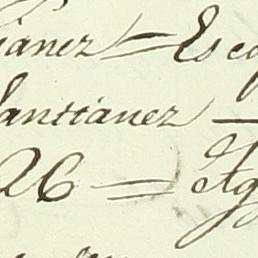 ianez = Esco
Santianez —
26 = Ag